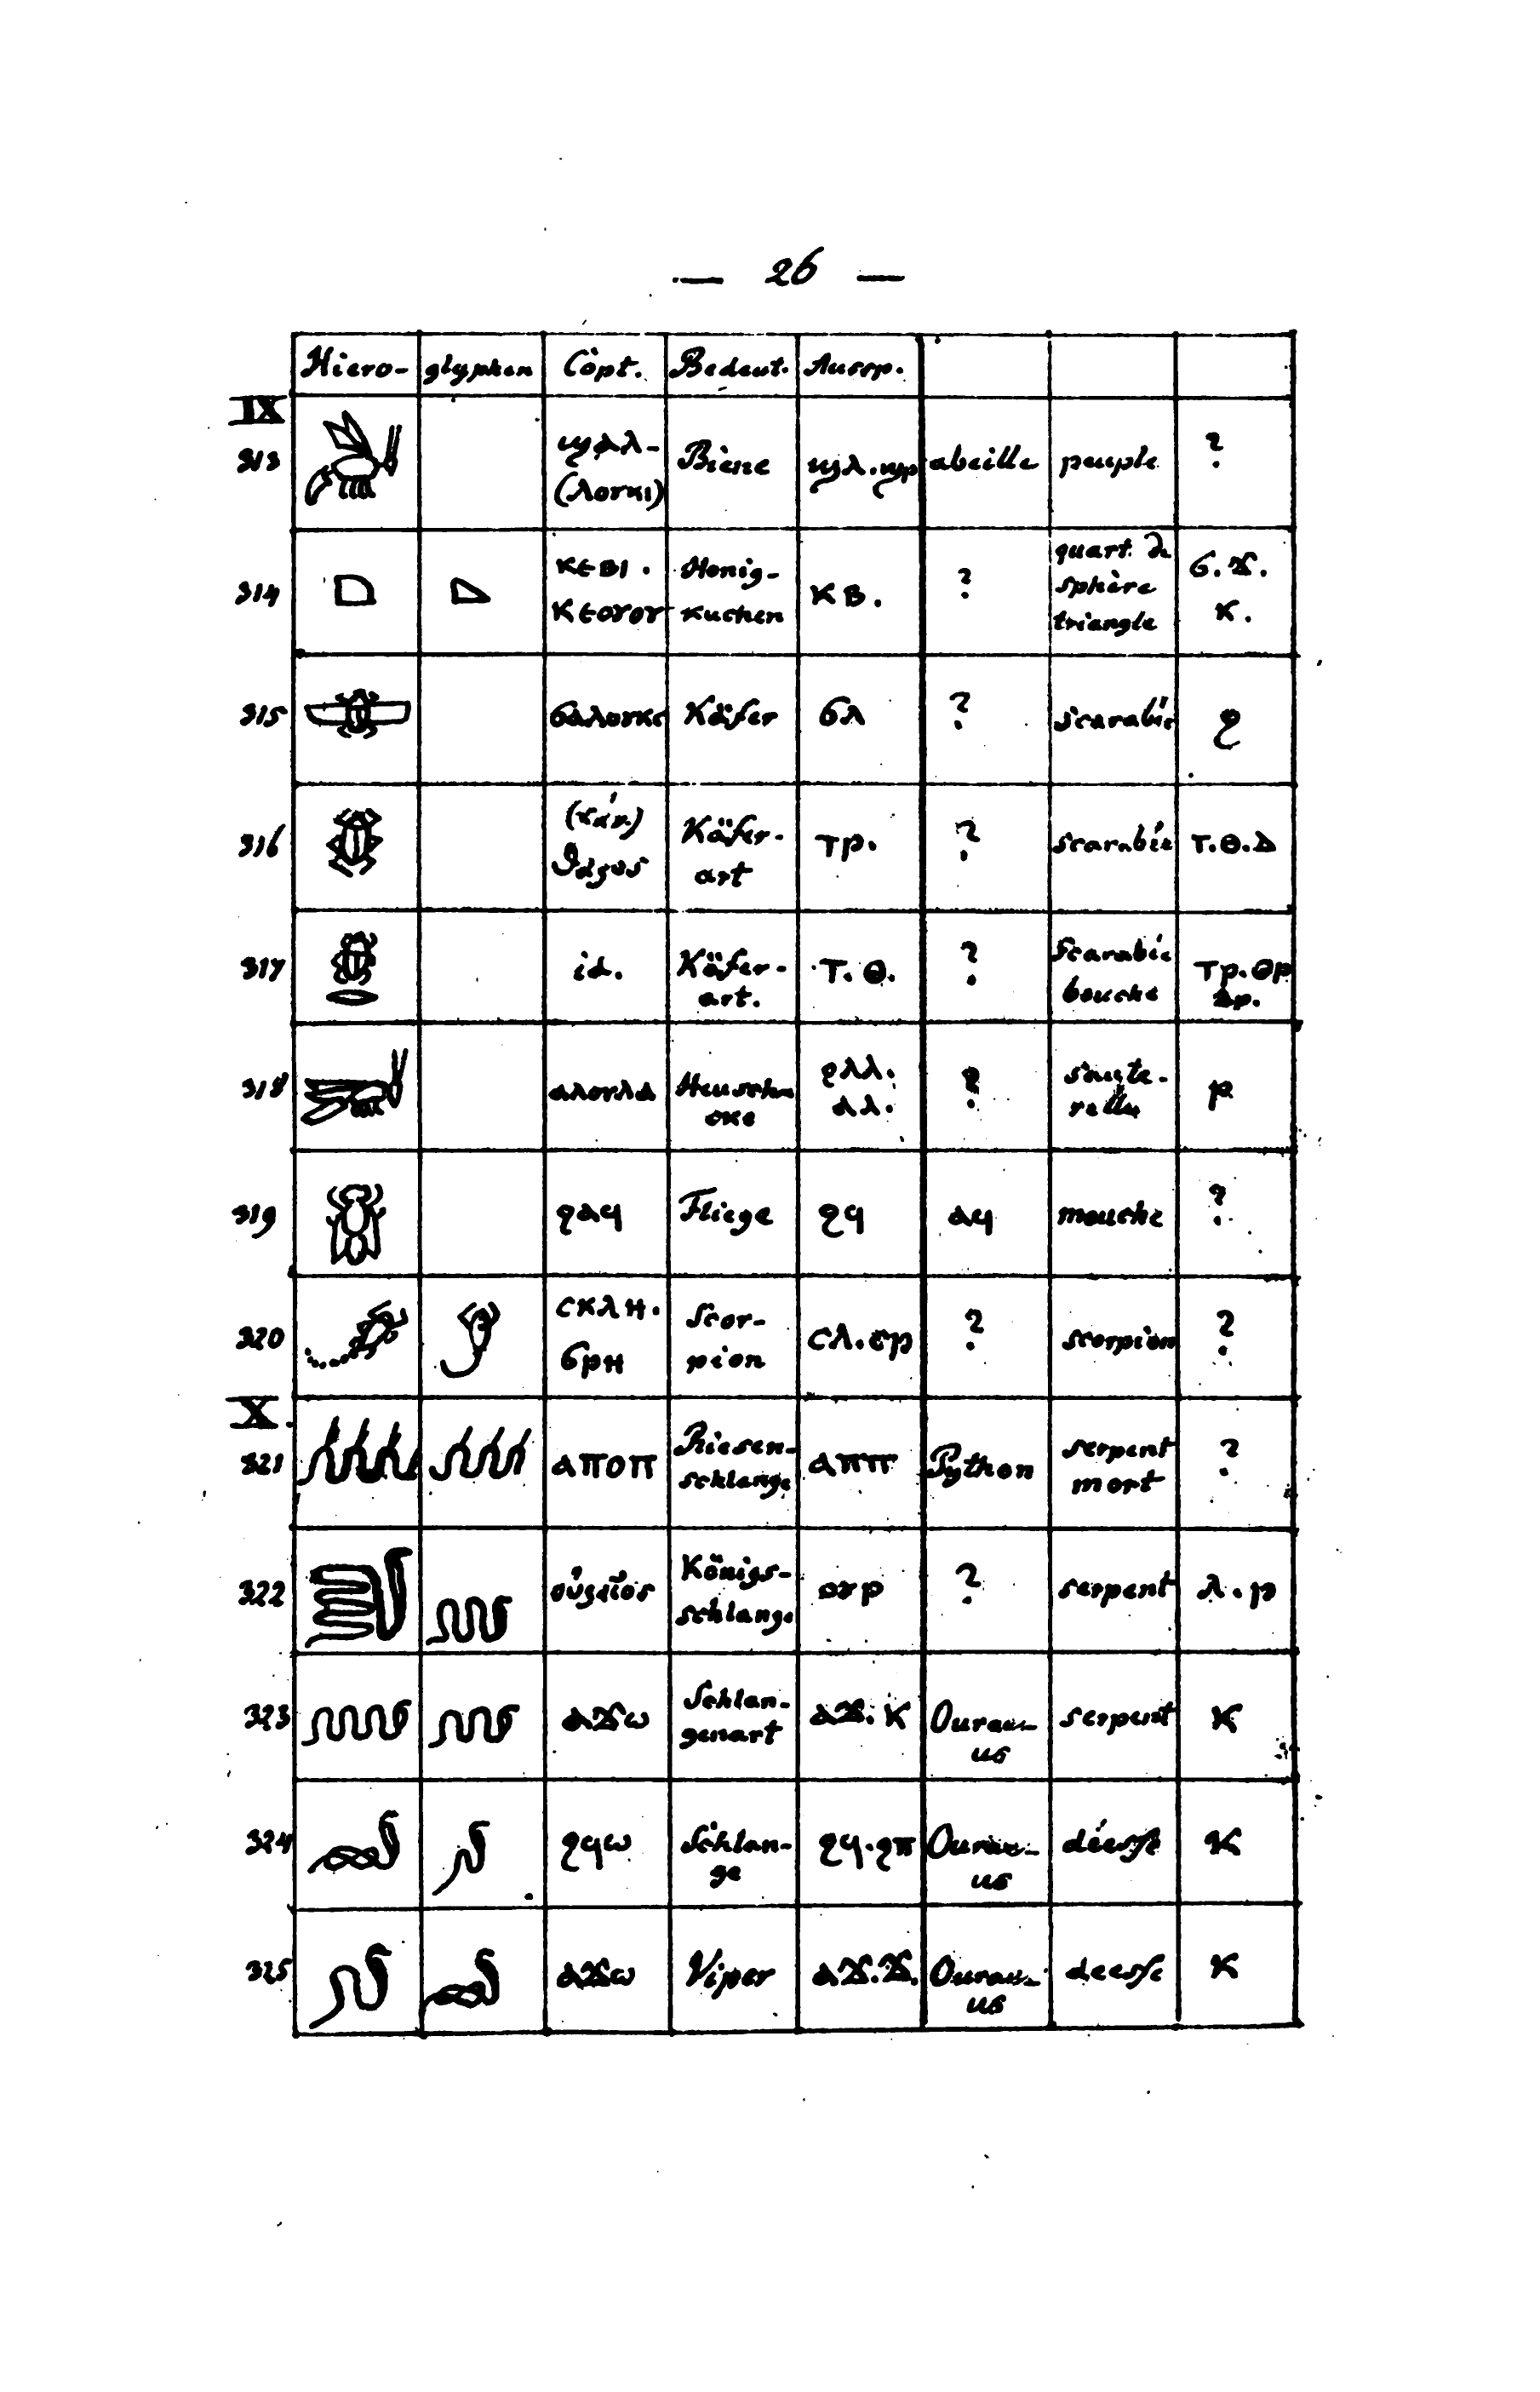 — 26 —
Hiero- glyphen Copt. Bedeut. Aussp.
IX
313 ϣⲁⲗ- (ⲗⲟⲩⲕⲓ) Biene ϣⲗ. ϣⲣ abeille peuple ?
314 ⲕⲉⲃⲓ. ⲕⲉⲟⲩⲟⲩ Honig-kuchen ⲕⲃ. ? quart. de sphère triangle ϭ. ϫ. ⲕ.
315 ϭⲁⲗⲟⲩⲕⲥ Käfer ϭⲗ ? scarabée ϩ
316 Käfer-art ⲧⲣ. ? scarabée ⲧ.ⲑ.ⲇ
317 id. Käfer-art. ⲧ. ⲑ. ? Scarabée bouche ⲧⲣ. ⲑⲣ ⲇⲣ.
318 ⲁⲗⲟⲩⲗⲁ Heusch-cke ϩⲗⲗ. ⲁⲗ. ? saute-relle ⲣ
319 ϩⲁϥ Fliege ϩϥ ⲁϥ mouche ?
320 ⲥⲕⲗⲏ. ϭⲣⲏ Scor-pion ⲥⲗ. ϭⲣ ? scorpion ?
X.
321 ⲁⲡⲟⲡ Riesen-schlange ⲁⲡⲡ Python serpent mort ?
322 οὐραῖος Königs-schlange ⲟⲩⲣ ? serpent ⲗ. ⲣ
323 ⲁϫⲱ Schlan-genart ⲁϫ. ⲕ Ourae-us serpent ⲕ
324 ϩϥⲱ Schlan-ge ϩϥ. ϩⲡ Ourae-us déesse ⲕ
325 ⲁϫⲱ Viper ⲁϫ. ϫ. Ourae-us deesse ⲕ